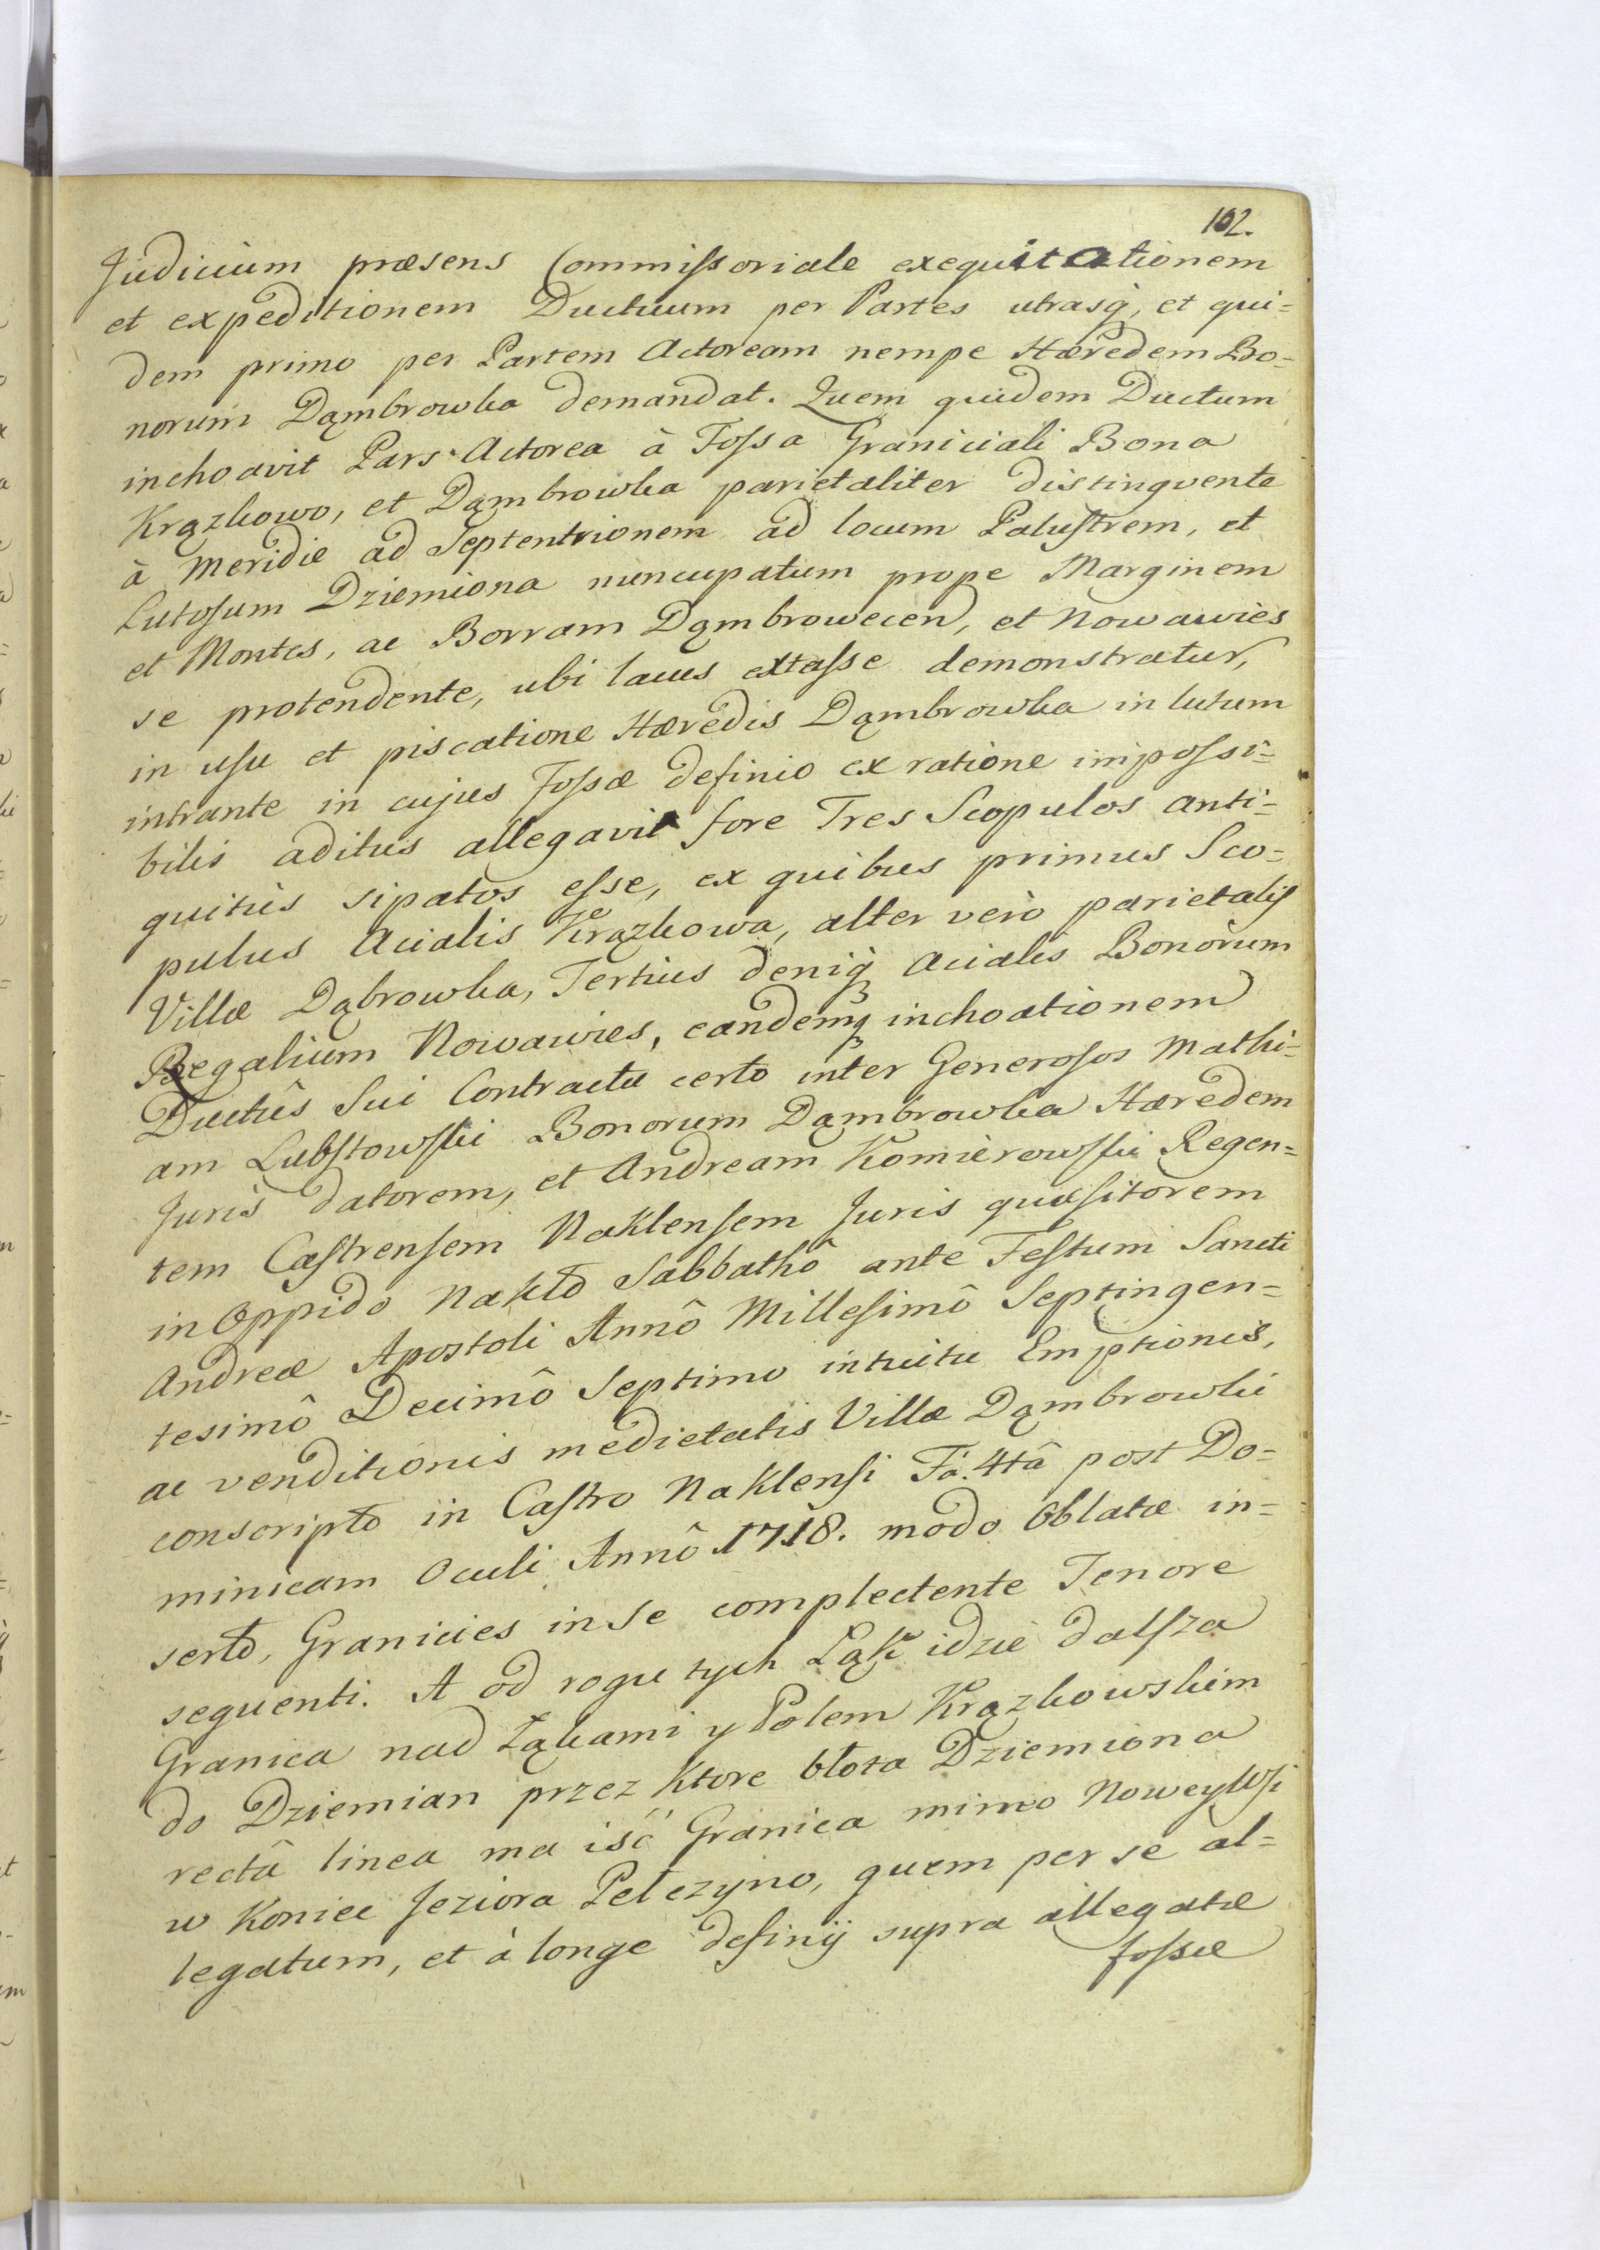 102.
Judicium præsens Commissoriale exequitationem
et expeditionem Ductuum per Partes utrasq, et qui=
dem primo per Partem Actoream nempe Hæredem Bo=
norum Dąmbrowka demandat. Quem quidem Ductum
inchoavit Pars Actorea à Fossa Graniciali Bona
Krązkowo, et Dąmbrowka parietaliter distingvente
à Meridie ad Septentrionem ad locum Palustrem, et
Lutosum Dziemiona nuncupatum prope Marginem
et Montes, ac Borram Dąmbrowecen, et Nowawies
se protendente, ubi lacus extasse demonstratur,
in usu et piscatione Hæredis Dąmbrowka in lutum
intrante in cujus Fossæ definio ex ratione impossi=
bilis aditus allegavit fore Tres Scopulos anti=
quitùs sipatos esse, ex quibus primus Sco=
pulus Acialis Krązkowa, alter verò parietalis
Villæ Dąbrowka, Tertius deniq Acialis Bonorum
Regalium Nowawies, eandemq inchoationem
Ductûs Sui Contractu certo inter Generosos Mathi=
am Lubstowski Bonorum Dąmbrowka Hæredem
Juris datorem, et Andream Komierowski Regen=
tem Castrensem Naklensem Juris quæsitorem
in Oppido Nakło Sabbathô ante Festum Sancti
Andreæ Apostoli Annô Millesimô Septingen=
tesimô Decimô Septimo intuitu Emptionis,
ac venditionis medietatis Villæ Dąmbrowki
conscripto in Castro Naklensi Fâ. 4tâ post Do=
minicam Oculi Annô 1718. modo Oblatæ in=
serto, Granicies in Se complectente Tenore
sequenti. A od rogu tych Łąk idzie dalsza
Granica nad Łąkami y Polem Krązkowskim
do Dziemian przez ktore błota Dziemiona
rectâ linea ma iść Granica mimo Nowey Wsi
w Koniec Jeziora Pełczyno, quem per se al=
legatum, et à longe definij supra allegatæ
fossæ